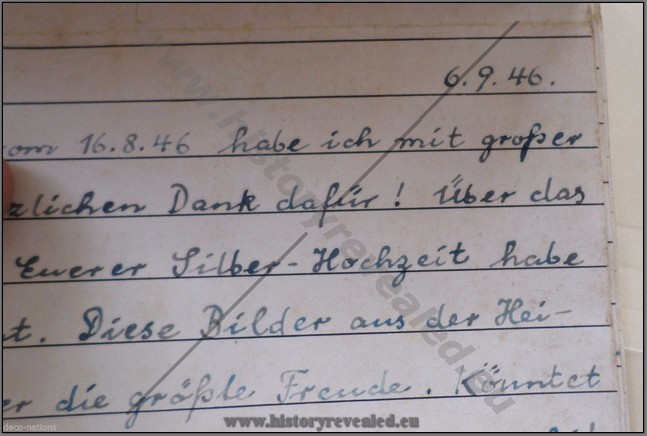 6.9.46.
vom 16.8.46 habe ich mit großer
zlichen Dank dafür! Über das
Eurer Silber-Hochzeit habe
t. Diese Bilder aus der Hei-
er die größte Freude. Könntet
www.historyrevealed.eu
www.historyrevealed.eu
deco-nations